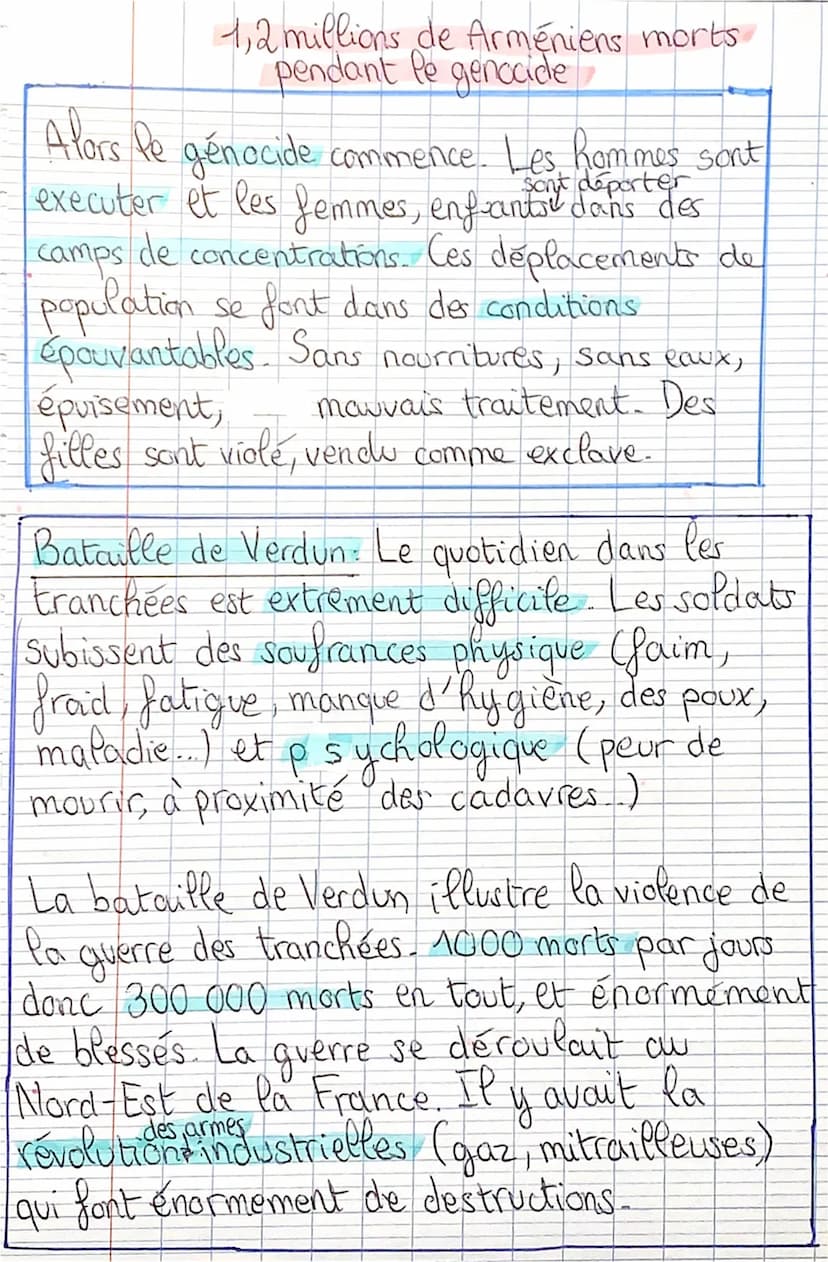 1,2 millions de Arméniens morts
pendant le genocide
Alors le génocide commence. Les hommes sont
executer et les femmes, enfants sont déporter dans des
camps de concentrations. Ces déplacements de
population se font dans des conditions
épouvantables. Sans nourritures, sans eaux,
épuisement, mauvais traitement. Des
filles sont violé, vendu comme exclave.
Bataille de Verdun: Le quotidien dans les
tranchées est extrement difficile. Les soldats
subissent des soufrances physique (faim,
froid, fatigue, manque d'hygiène, des poux,
maladie...) et psychologique (peur de
mourir, à proximité des cadavres...)
La bataille de Verdun illustre la violence de
la guerre des tranchées. 1000 morts par jours
donc 300 000 morts en tout, et énormément
de blessés. La guerre se déroulait au
Nord-Est de la France. Il y avait la
révolution des armes industrielles (gaz, mitrailleuses)
qui font énormement de destructions.